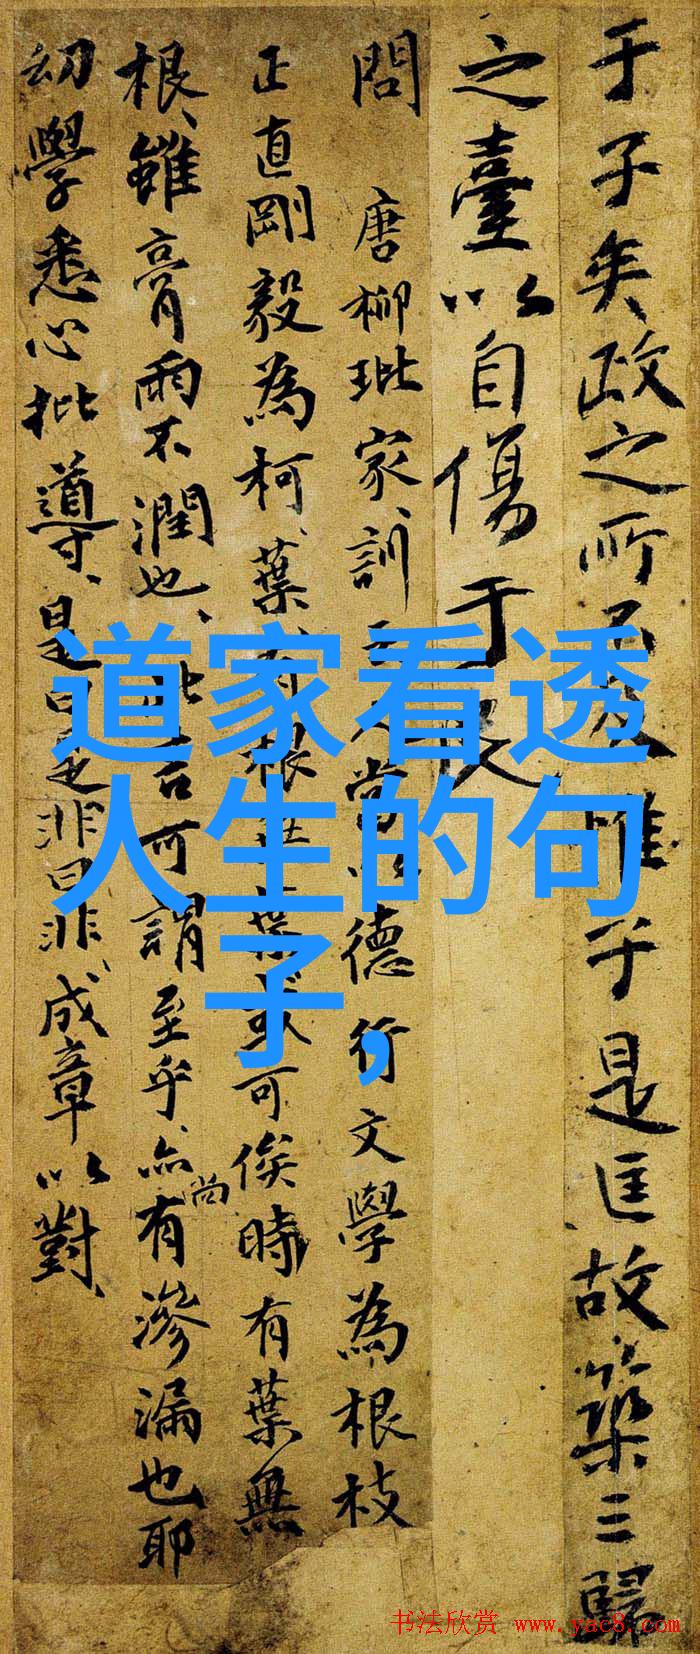 于子矣政之所 惟于是匡故築三歸
之臺以自傷于民
問 唐柳玭家訓 當以德行文學為根枝
正直剛毅為柯葉有根無葉或可俟時有葉無
根雖膏雨不潤也此 可謂至乎亦尚有滲漏也耶
幼學悉心批導是曰是非曰非成章以對
道家看透
人生的句
子,
书法欣赏 www.yac8.com